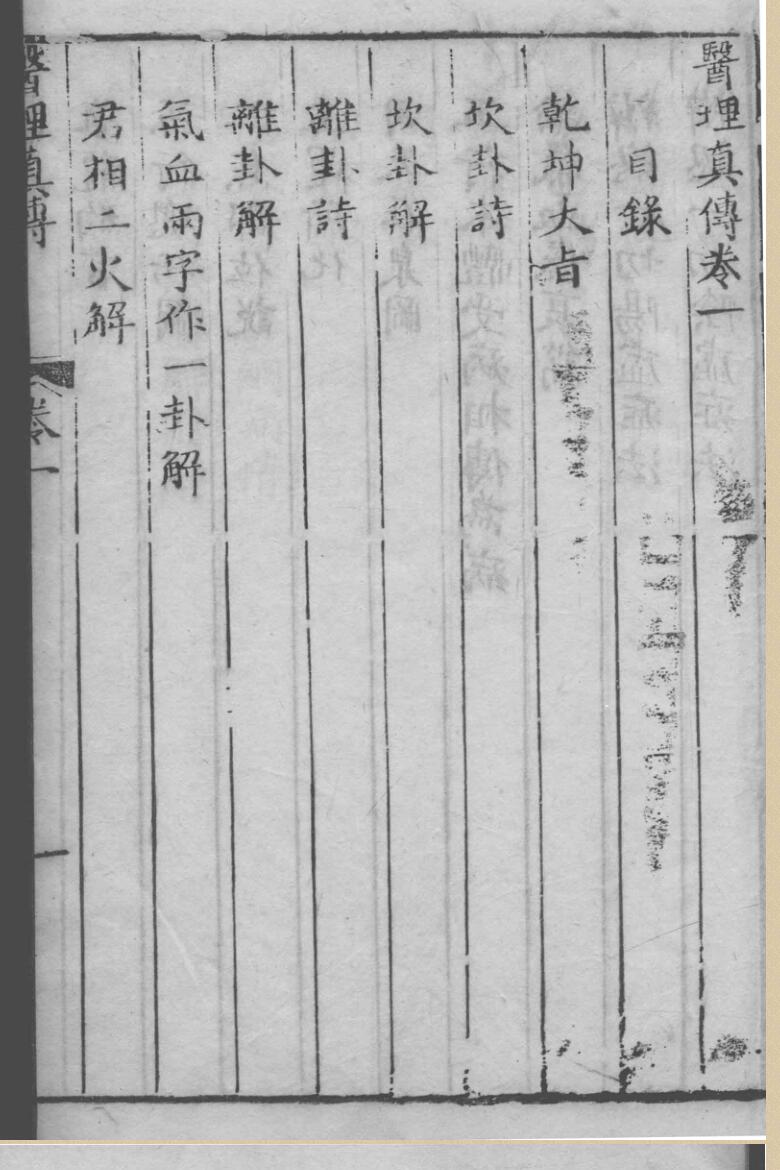 醫理真傳卷一
目錄
乾坤大旨
坎卦詩
坎卦解
離卦詩
離卦解
氣血兩字作一卦解
君相二火解
醫理真傳
卷一
一